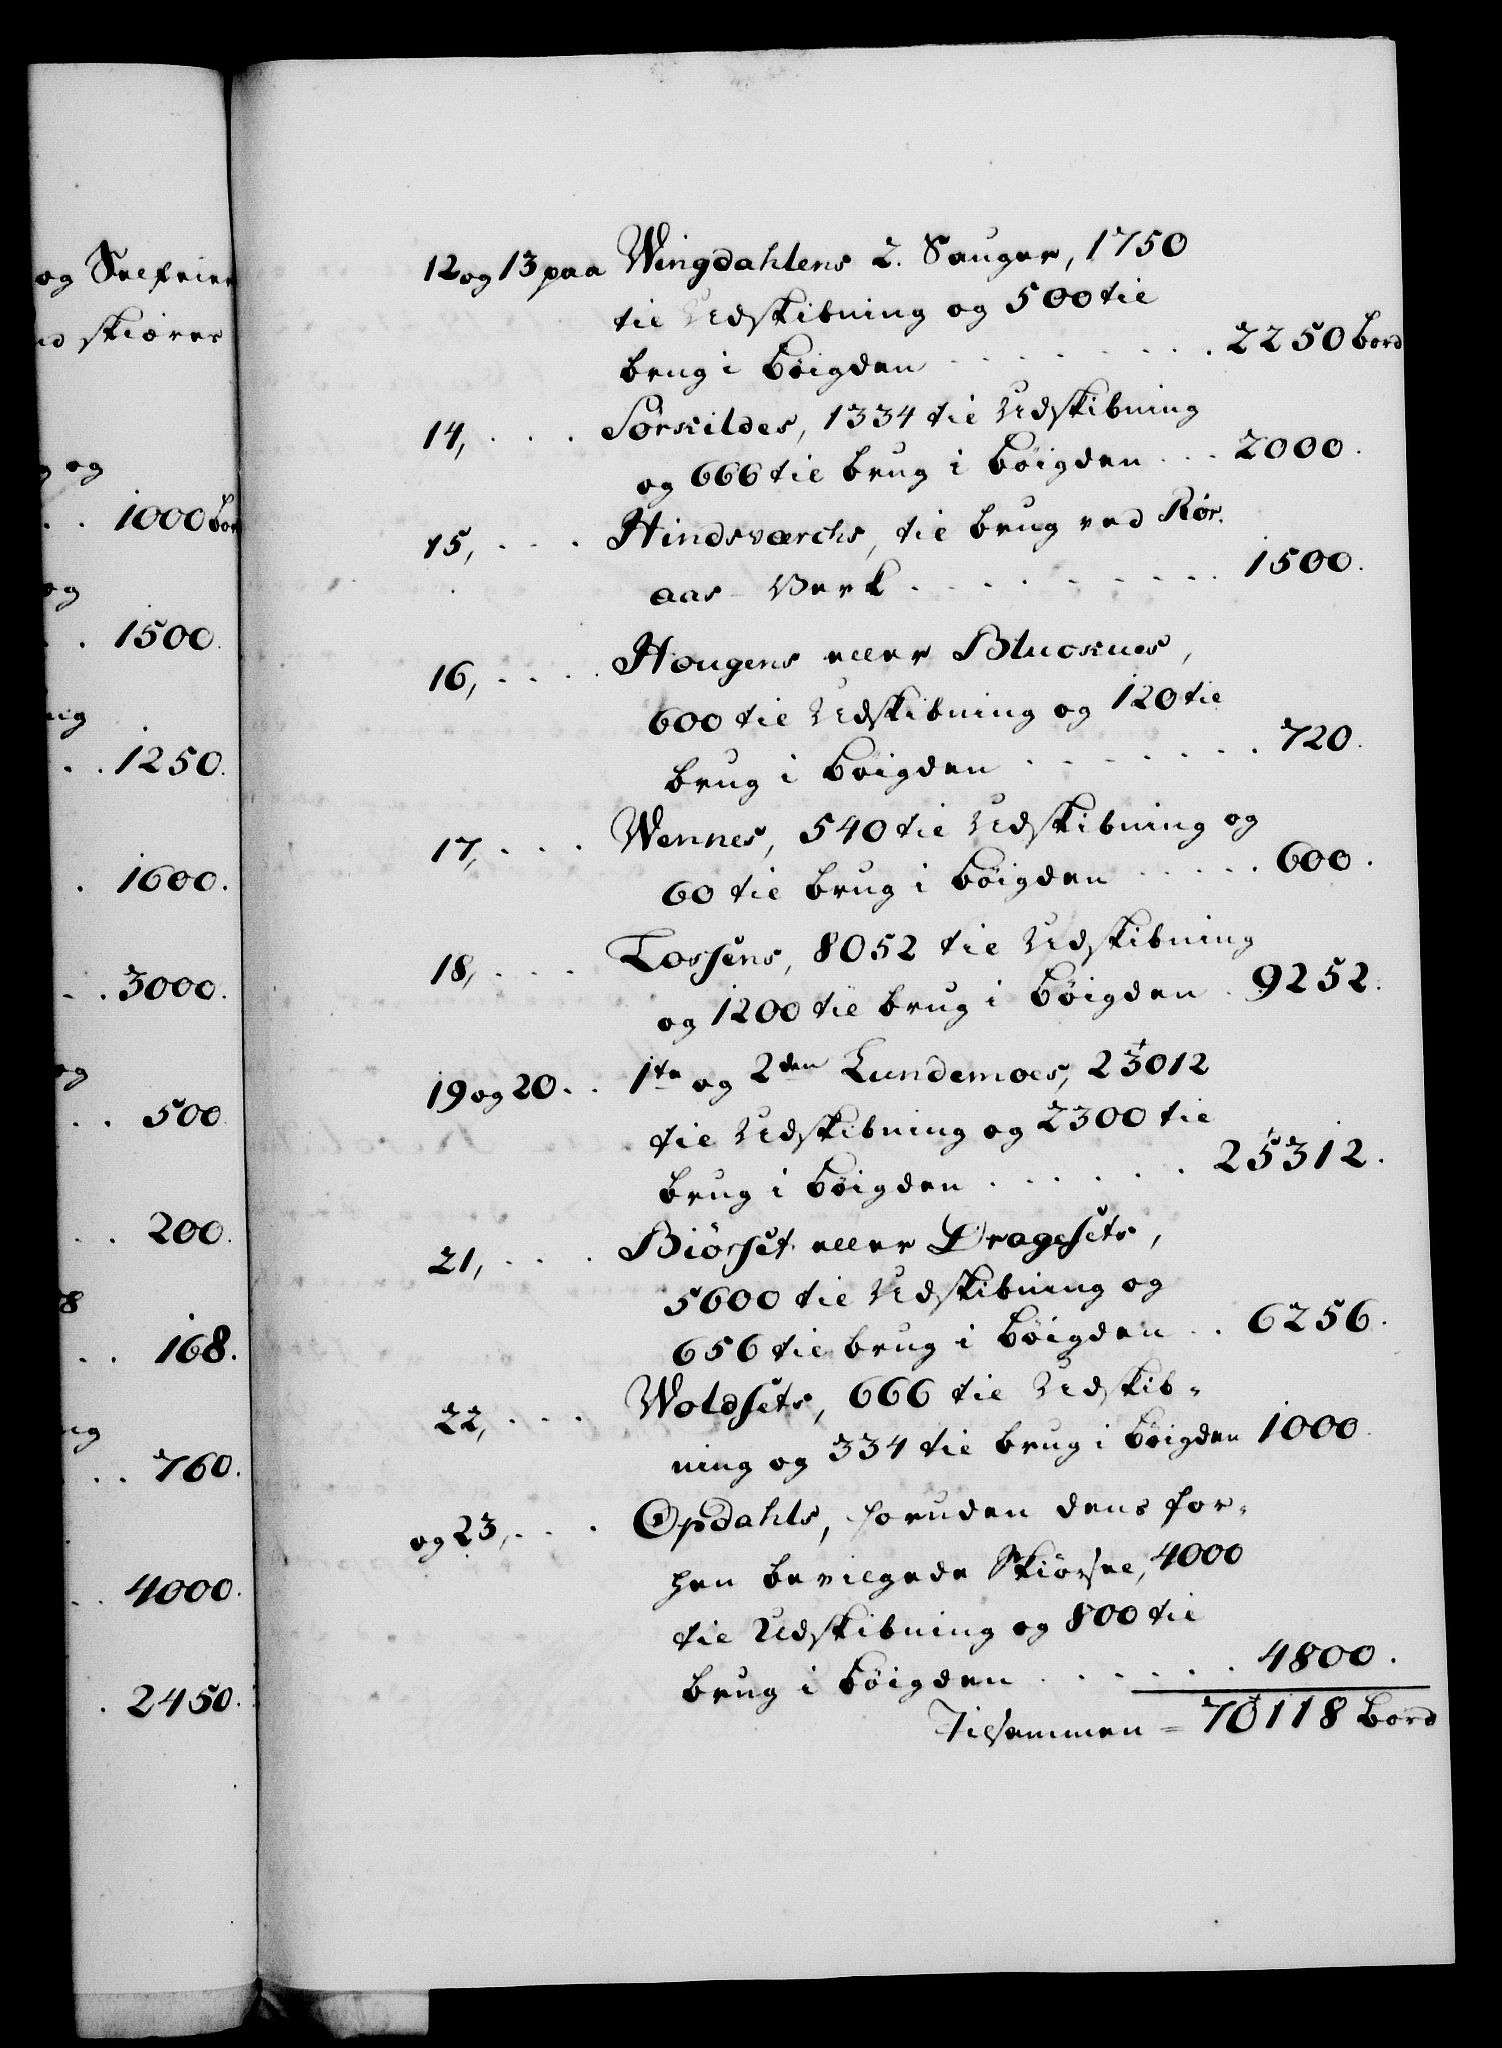 og Selfeier
skiører
og
1000 bor
og
1500.
1250.
1600.
3000.
og
500
200.
168.
760.
4000.
2450.
12 og 13 paa Wingdahlens 2. Sauger, 1750
til Udskibning og 500 til
brug i böigden . . . . . . . . 2250 bord
14, . . . Sörkildes, 1334 til Udskibning
og 666 til brug i böigden . . . 2000.
15, . . . Hindsværchs, til brug ved Rör-
aas Werk . . . . . . . . 1500.
16, . . . . Hougens eller Bluckues,
600 til Udskibning og 120 til
brug i böigden . . . . . . . 720.
17, . . . Wennes, 540 til Udskibning og
60 til brug i böigden . . . . . 600.
18, . . . Lossens, 8052 til Udskibning
og 1200 til brug i böigden . 9252.
19 og 20. . 1te og 2den Lundemoes, 23012
til Udskibning og 2300 til
brug i böigden . . . . . . 25312.
21, . . . Biörset eller Dragesets,
5600 til Udskibning og
656 til brug i böigden . . 6256.
22, . . . Woldsets, 666 til Udskib-
ning og 334 til brug i böigden 1000
og 23, . . . Opdahls, foruden dens for-
hen bevilgede Skiörsel, 4000
til Udskibning og 800 til
brug i böigden . . . . . . 4800.
Tilsammen = 70118 bord